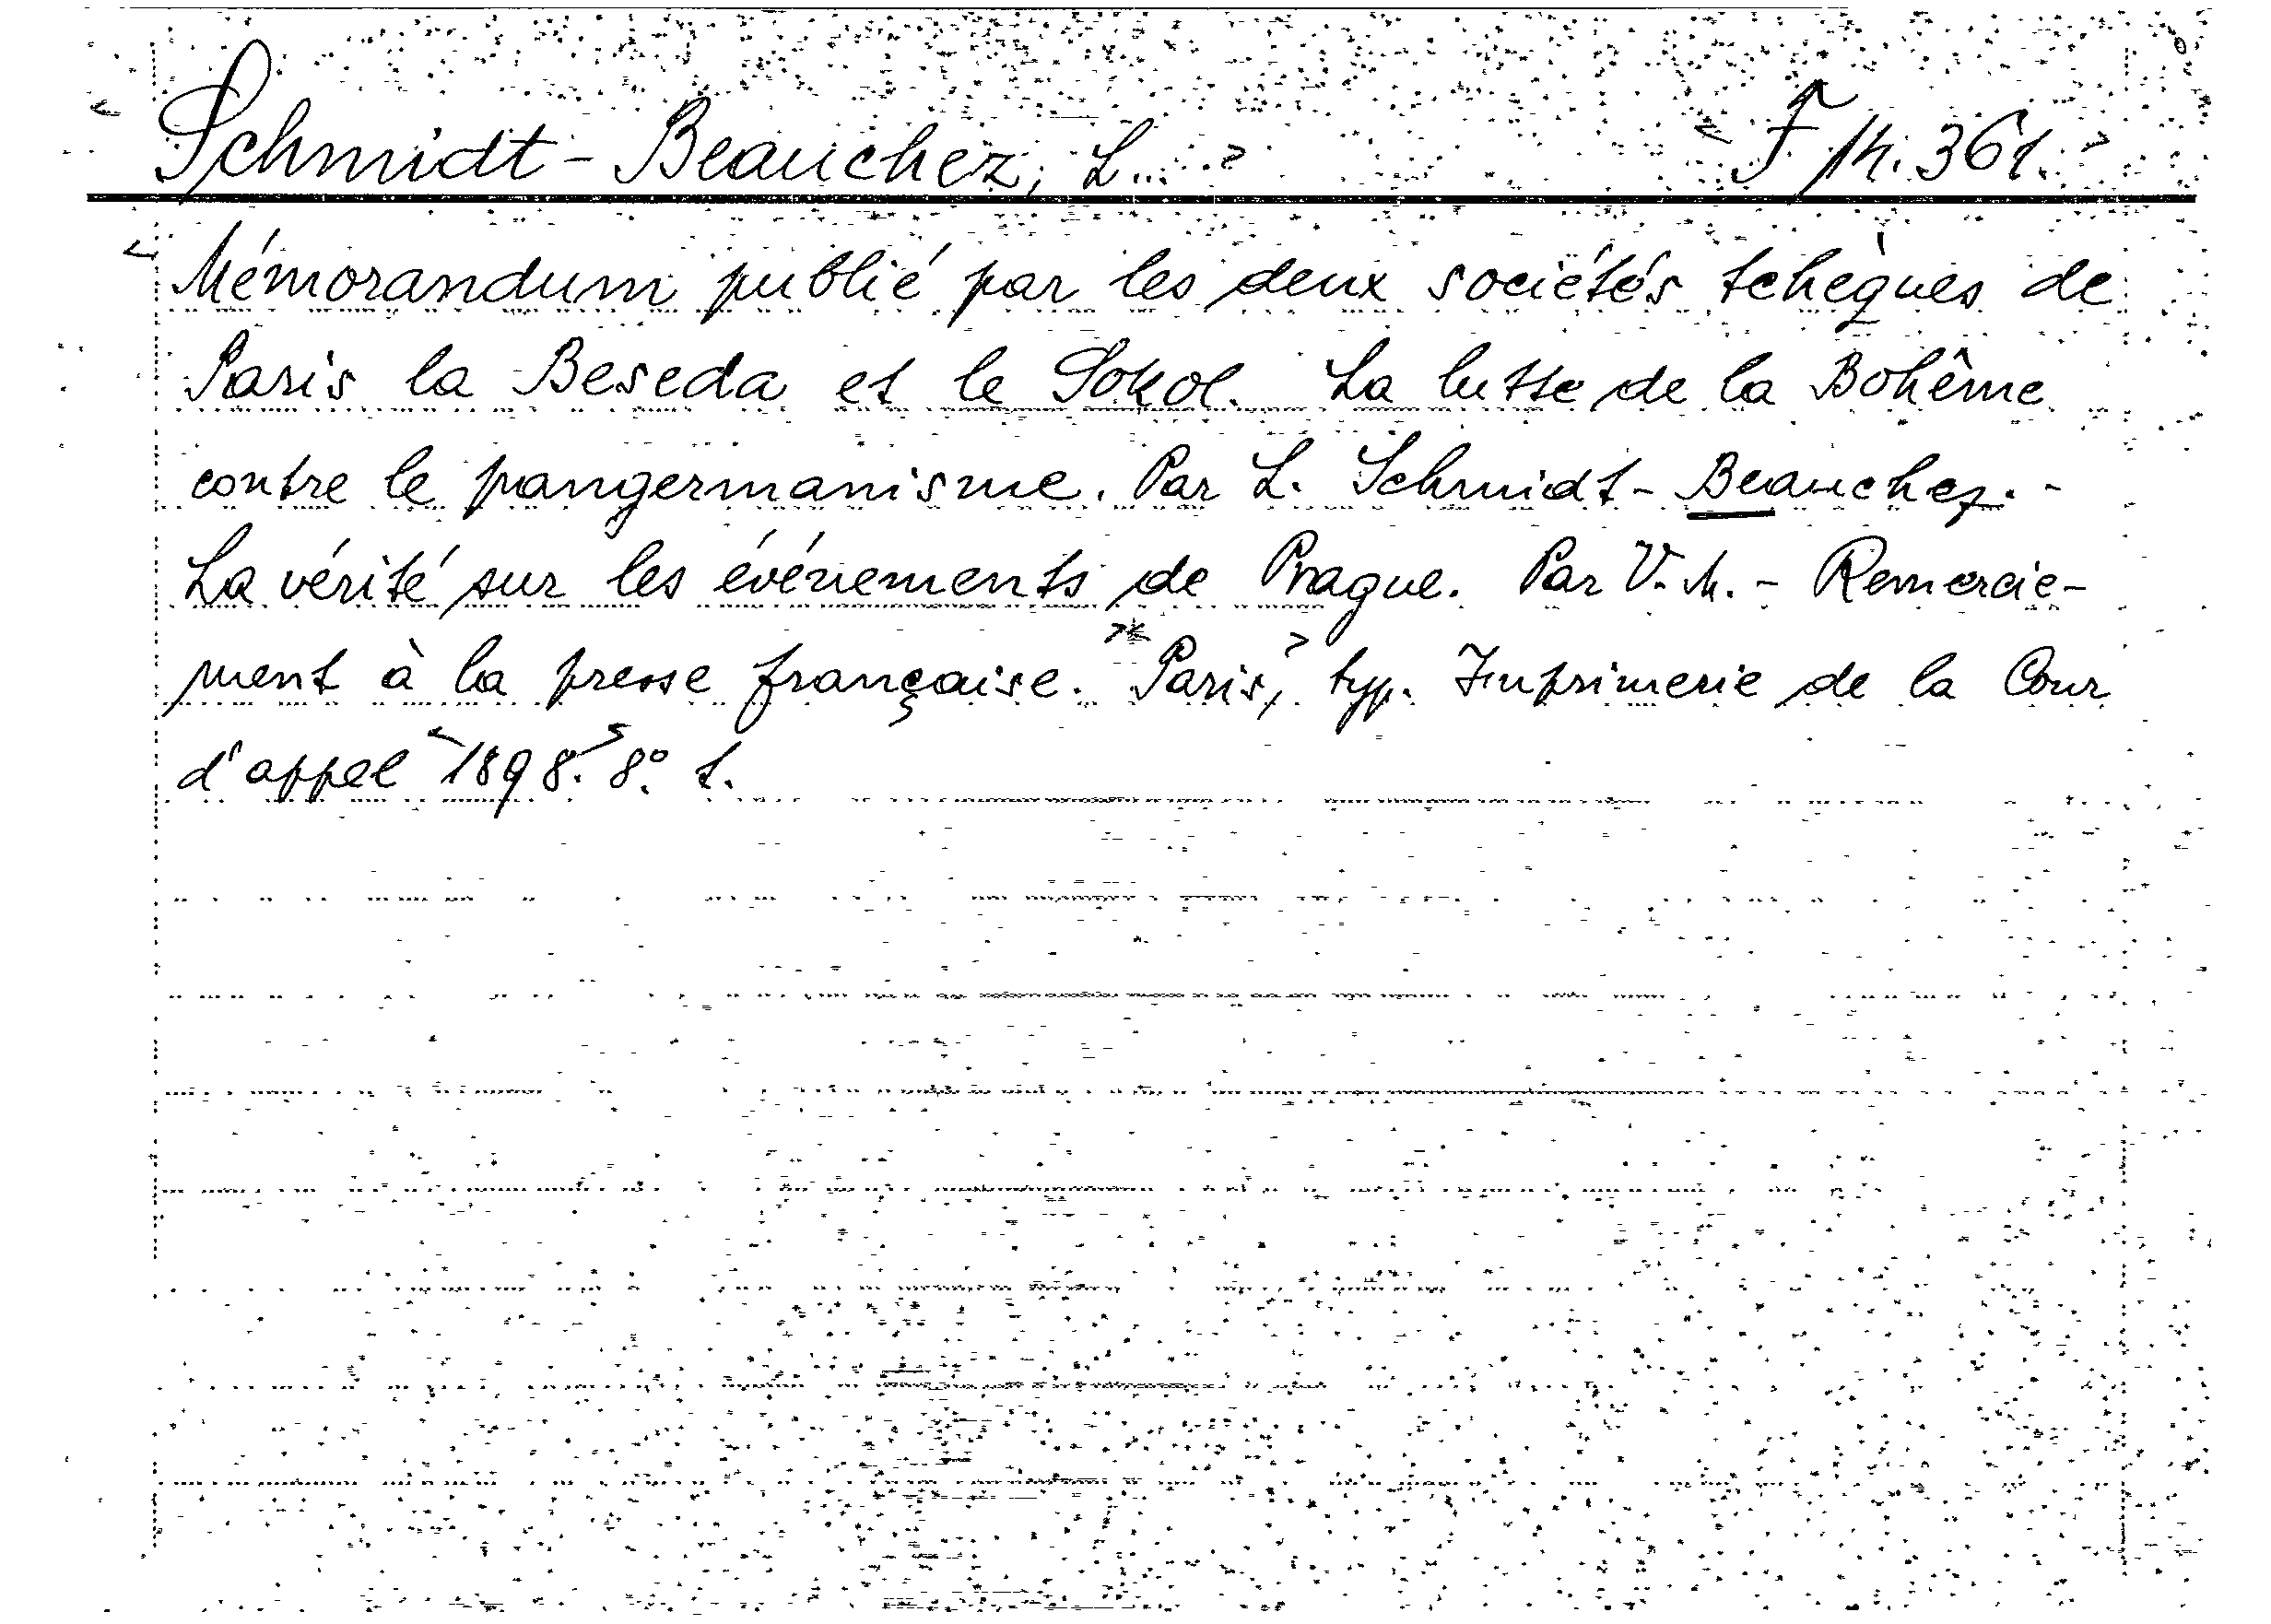 Schmidt-Beauchez, L... F 14.361.
Mémorandum publié par les deux sociétés tchèques de
Paris la Beseda et le Sokol. La lutte de la Bohême
contre le pangermanisme. Par L. Schmidt-Beauchez. -
La vérité sur les événements de Prague. Par V. M. - Remercie-
ment à la presse française. Paris, typ. Imprimerie de la Cour
d'appel 1898. 8° 1.